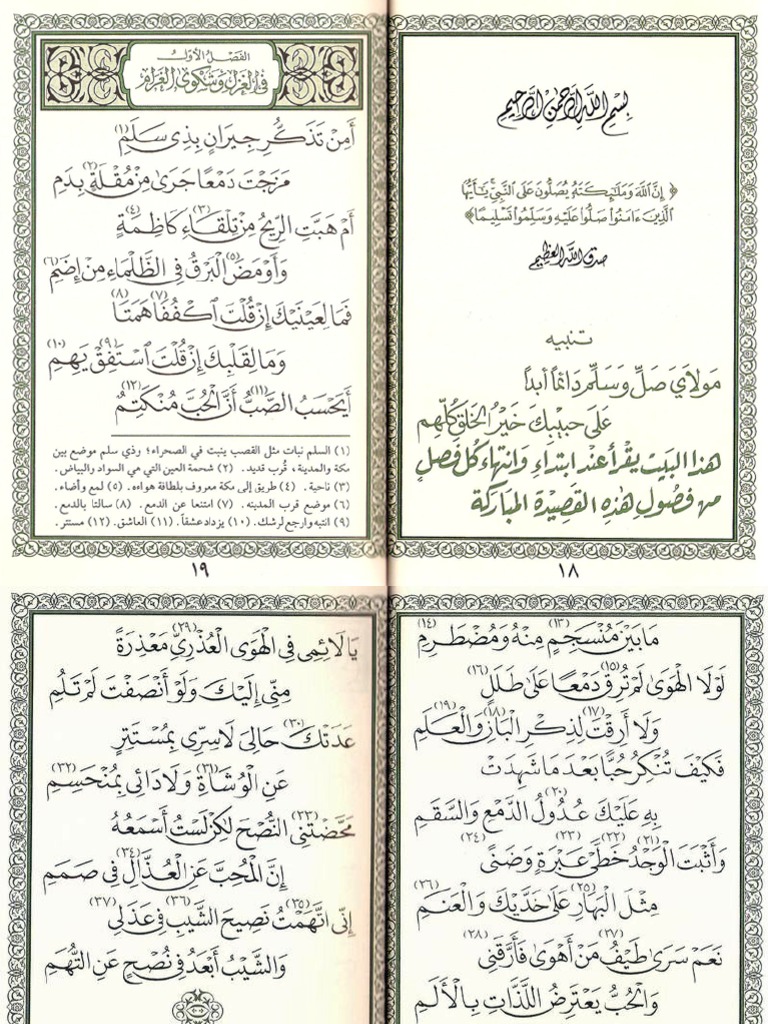 بِسْمِ اللَّهِ الرَّحْمٰنِ الرَّحِيمِ
﴿ إِنَّ اللَّهَ وَمَلَٰٓئِكَتَهُۥ يُصَلُّونَ عَلَى النَّبِيِّ يَٰٓأَيُّهَا
الَّذِينَ ءَامَنُوا۟ صَلُّوا۟ عَلَيْهِ وَسَلِّمُوا۟ تَسْلِيمًا﴾
صدق الله العظيم
تنبيه
مَوْلَايَ صَلِّ وَسَلِّمْ دَائِمًا أَبَدًا
عَلَى حَبِيبِكَ خَيْرِ الْخَلْقِ كُلِّهِمِ
هذا البَيت يقرأ عند ابتداءِ وَانتهاء كل فَصلٍ
من فصُول هذه القصيدة المباركة
١٨
الفَصْلُ الأَوَّلُ
فِي الغَزَلِ وَشَكْوَى الغَرَامِ
أَمِنْ تَذَكُّرِ جِيرَانٍ بِذِي سَلَمِ (١)
مَزَجْتَ دَمْعًا جَرَى مِنْ مُقْلَةٍ (٢) بِدَمِ
أَمْ هَبَّتِ الرِّيحُ مِنْ تِلْقَاءِ (٣) كَاظِمَةٍ (٤)
وَأَوْمَضَ (٥) الْبَرْقُ فِي الظَّلْمَاءِ مِنْ إِضَمِ (٦)
فَمَا لِعَيْنَيْكَ إِنْ قُلْتَ اكْفُفَا (٧) هَمَتَا (٨)
وَمَا لِقَلْبِكَ إِنْ قُلْتَ اسْتَفِقْ (٩) يَهِمِ (١٠)
أَيَحْسَبُ الصَّبُّ (١١) أَنَّ الْحُبَّ مُنْكَتِمٌ (١٢)
(١) السلم نبات مثل القصب ينبت في الصحراء؛ وذي سلم موضع بين
مكة والمدينة، قُرب قديد. (٢) شحمة العين التي هي السواد والبياض.
(٣) ناحية. (٤) طريق إلى مكة معروف بلطافة هواءه. (٥) لمع وأضاء.
(٦) موضع قرب المدينه. (٧) امتنعا عن الدمع. (٨) سالتا بالدمع.
(٩) انتبه وارجع لرشدك. (١٠) يزداد عشقاً. (١١) العاشق. (١٢) مستتر.
١٩
مَا بَيْنَ مُنْسَجِمٍ (١٣) مِنْهُ وَمُضْطَرِمِ (١٤)
لَوْلَا الْهَوَى لَمْ تُرِقْ (١٥) دَمْعًا عَلَى طَلَلٍ (١٦)
وَلَا أَرِقْتَ (١٧) لِذِكْرِ الْبَانِ (١٨) وَالْعَلَمِ (١٩)
فَكَيْفَ تُنْكِرُ حُبًّا بَعْدَ مَا شَهِدَتْ
بِهِ عَلَيْكَ عُدُولُ (٢٠) الدَّمْعِ وَالسَّقَمِ
وَأَثْبَتَ الْوَجْدُ (٢١) خَطَّيْ (٢٢) عَبْرَةٍ (٢٣) وَضَنًى (٢٤)
مِثْلَ الْبَهَارِ (٢٥) عَلَى خَدَّيْكَ وَالْعَنَمِ (٢٦)
نَعَمْ سَرَى طَيْفُ (٢٧) مَنْ أَهْوَى فَأَرَّقَنِي (٢٨)
وَالْحُبُّ يَعْتَرِضُ اللَّذَّاتِ بِالْأَلَمِ
يَا لَائِمِي فِي الْهَوَى الْعُذْرِيِّ (٢٩) مَعْذِرَةً
مِنِّي إِلَيْكَ وَلَوْ أَنْصَفْتَ لَمْ تَلُمِ
عَدَتْكَ (٣٠) حَالِيَ لَا سِرِّي بِمُسْتَتِرٍ
عَنِ الْوُشَاةِ (٣١) وَلَا دَائِي بِمُنْحَسِمِ (٣٢)
مَحَّضْتَنِي (٣٣) النُّصْحَ لَكِنْ لَسْتُ أَسْمَعُهُ
إِنَّ الْمُحِبَّ عَنِ الْعُذَّالِ (٣٤) فِي صَمَمِ
إِنِّي اتَّهَمْتُ (٣٥) نَصِيحَ الشَّيْبِ (٣٦) فِي عَذَلِي (٣٧)
وَالشَّيْبُ أَبْعَدُ فِي نُصْحٍ عَنِ التُّهَمِ